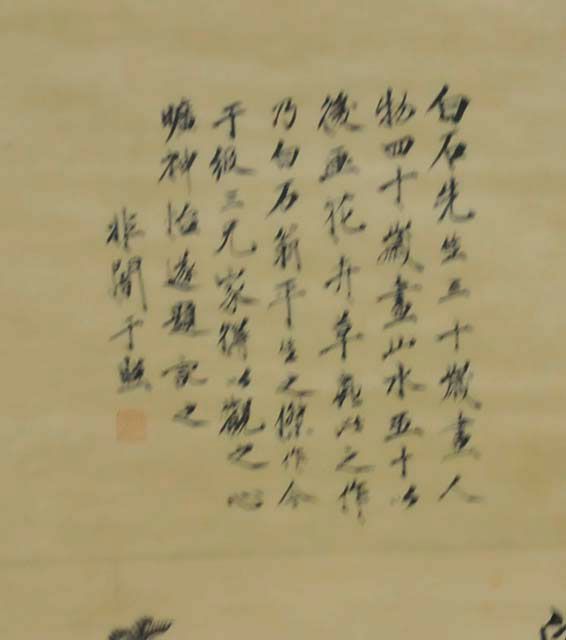 白石先生三十歲畫人
物四十歲畫山水五十以
後畫花卉草蟲此之作
乃白石翁平生之傑作今
于級三兄家得以觀之心
曠神怡遂題記之
非闇于照